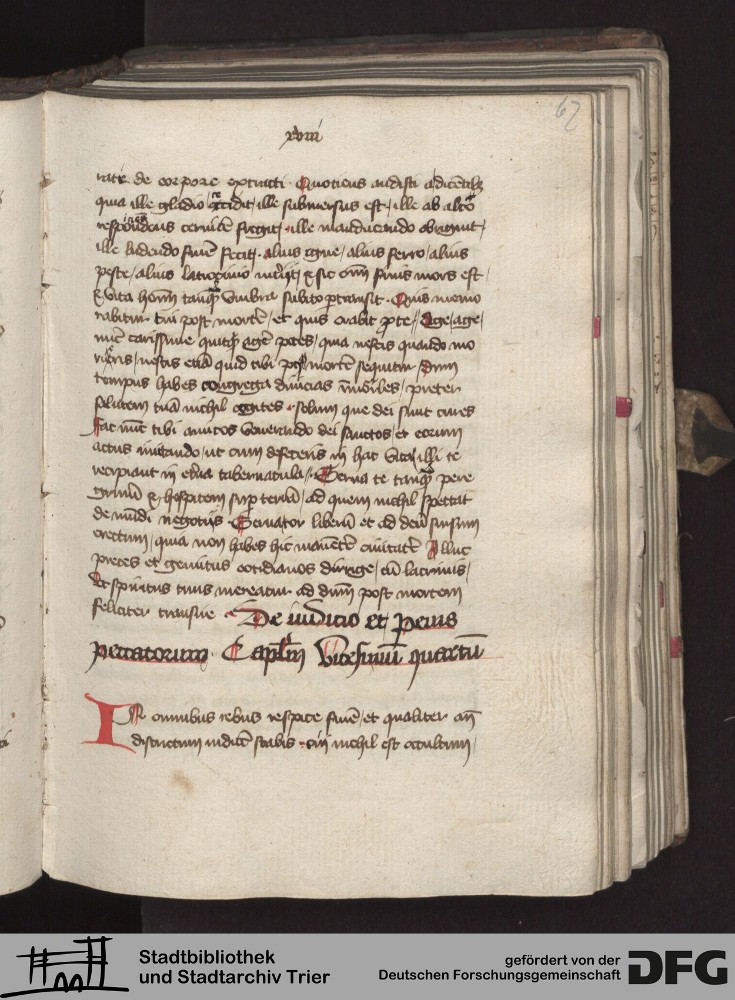 xviii
62
rate de corpore extracti. Quotiens audisti a dicentibz
quia ille gladio cecidit, ille submersus est, ille ab alto
ruens cervicē fregit, ille manducando obriguit,
ille ludendo finē fecit. alius igne, alius ferro, alius
peste, alius latrocinio interijt, & sic oīm finis mors est,
& vita hoīm tanqȝ umbra subito ptransit. Quis memo
rabitur tui post mortē, et quis orabit p te, Age, age,
nūc carissime quitqd agē potes, quia nescis quando mo
rieris, nescis etiā quid tibi post mortē sequitur, dum
tempus habes congrega divicias īmortales, preter
salutem tuā nichil cogites, solum que dei sunt cures
Fac nūc tibi amicos venerando dei sanctos, et eorum
actus imitando, ut cum defeceris in hac vita, illi te
recipiant in etīna tabernacula. Serva te tanqȝ pere
grinū & hospitem sup terrā, ad quem nichil spectat
de mūdi negotijs. Servator liberū et ad deū sursum
erectum, quia non habes hic manentē civitatē Illuc
preces et gemitus cotidianos dirige, cū lacrimis,
Ut spiritus tuus mereatur ad dnm post mortem
feliciter transire. De iudicio et penis
peccatorum. Capłm Vicesimū quartū
IN omnibus rebus respice finē, et qualiter an̄
districtum iudicē stabis, cui nichil est occultum,
Stadtbibliothek
und Stadtarchiv Trier
gefördert von der
Deutschen Forschungsgemeinschaft
DFG